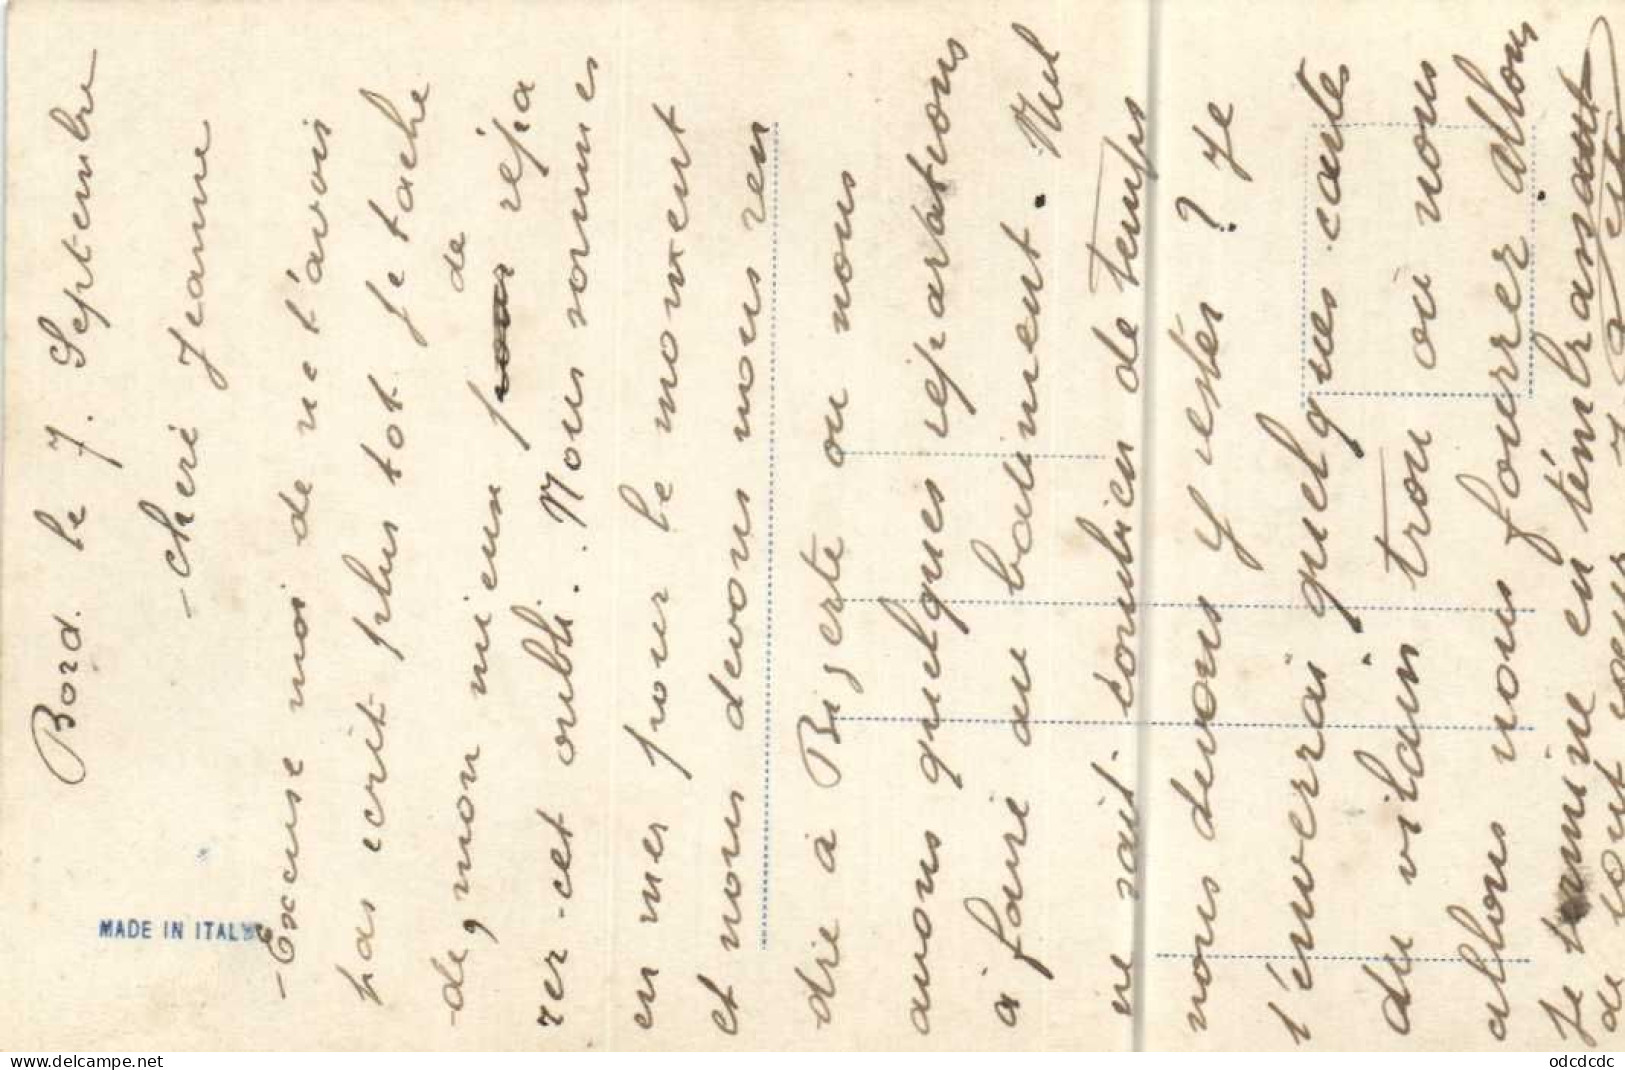 Bord. le 7. Septembre
- cheri Jeanne
- Excuse moi de ne t'avois
pas ecrit plus tot je tache
de mon mieux de répa
rer-cet oubli. Nous sommes
en mer pour le moment
et nous devons nous ren
dre à Bizerte ou nous
avons quelques réparations
a faire au batiment. Nul
ne sait combien de temps
nous devons y restés ? Je
t'enverrai quelques carte
du vilain trou où nous
allons nous fourrer allons
Je termine en t'embrassant
de tout coeur
MADE IN ITALY
delcampe.net
odcdcdc